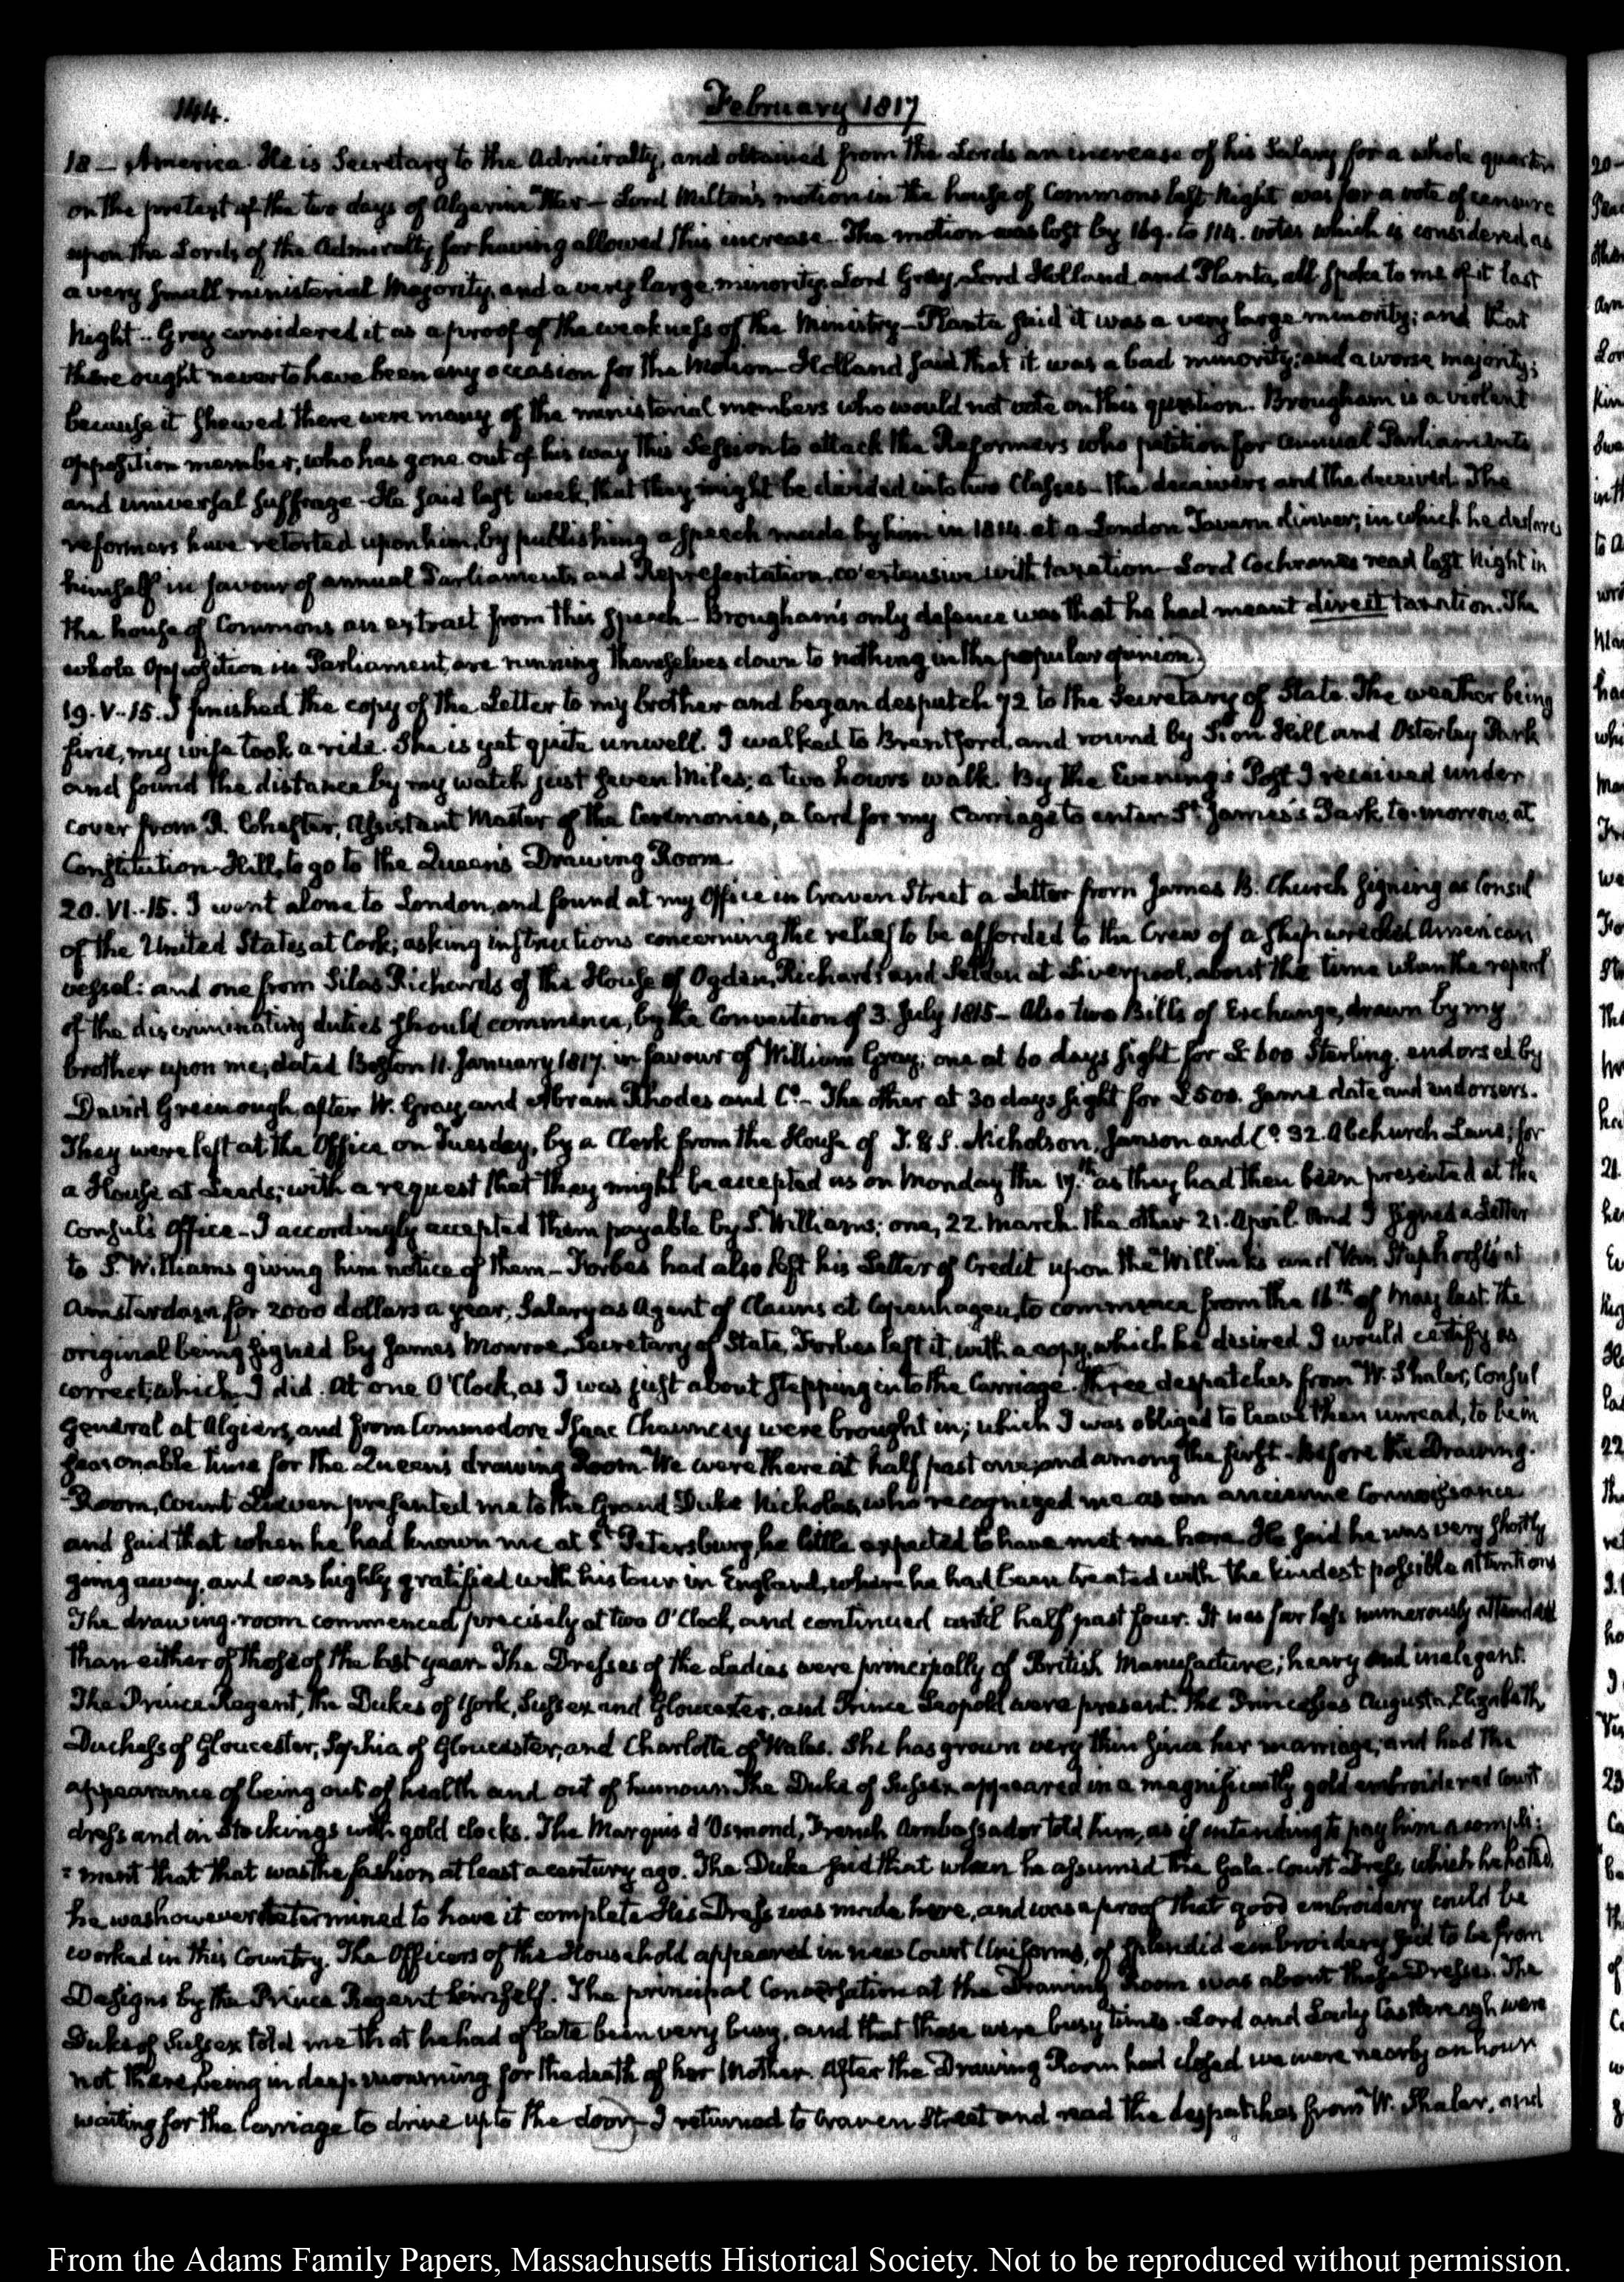 144.
February 1817
18 — America. He is Secretary to the Admiralty, and obtained from the Lords an increase of his Salary for a whole quarter
on the pretext of the two days of Algerine War — Lord Milton's motion in the house of Commons last Night was for a vote of censure
upon the Lords of the Admiralty for having allowed this increase. The motion was lost by 169. to 114. votes which is considered as
a very small ministerial Majority, and a very large minority. Lord Grey, Lord Holland and Planta, all spoke to me of it last
Night — Grey considered it as a proof of the weakness of the Ministry — Planta said it was a very large minority; and that
there ought never to have been any occasion for the Motion — Holland said that it was a bad minority; and a worse majority;
because it shewed there were many of the ministerial members who would not vote on this question. Brougham is a violent
opposition member, who has gone out of his way this Session to attack the Reformers who petition for annual Parliaments
and universal suffrage — He said last week, that they might be divided into two Classes — the deceivers and the deceived. The
reformers have retorted upon him, by publishing a speech made by him in 1814. at a London Tavern dinner; in which he declares
himself in favour of annual Parliaments and Representation co'extensive with taxation — Lord Cochrane read last Night in
the house of Commons an extract from this speech — Brougham's only defence was that he had meant direct taxation. The
whole Opposition in Parliament, are running themselves down to nothing in the popular opinion.
19. V..15. I finished the copy of the Letter to my brother and began despatch 72 to the Secretary of State. The weather being
fine, my wife took a ride. She is yet quite unwell. I walked to Brentford, and round by Sion Hill and Osterley Park
and found the distance by my watch just seven Miles; a two hours walk. By the Evening's Post I received under
cover from R. Chester, Assistant Master of the Ceremonies, a Card for my Carriage to enter St. James's Park, to-morrow, at
Constitution-Hill, to go to the Queen's Drawing Room.
20. VI..15. I went alone to London, and found at my Office in Craven Street a Letter from James B. Church signing as Consul
of the United States, at Cork; asking instructions concerning the relief to be afforded to the Crew of a shipwrecked American
vessel: and one from Silas Richards of the House of Ogden, Richards and Selden at Liverpool, about the time when the repeal
of the discriminating duties should commence, by the Convention of 3. July 1815 — Also two Bills of Exchange, drawn by my
brother upon me; dated Boston 11. January 1817. in favour of William Gray; one at 60 days sight for £600 Sterling, endorsed by
David Greenough, after W. Gray, and Abram Rhodes and Co. — The other at 30 days sight for £500. same date and endorsers.
They were left at the Office on Tuesday, by a Clerk from the House of T. & S. Nicholson, Janson and Co. 32. Abchurch Lane; for
a House at Leeds; with a request that they might be accepted as on Monday the 17.th as they had then been presented at the
Consul's Office — I accordingly accepted them payable by S. Williams; one, 22. March. the other 21. April. And I signed a Letter
to S. Williams giving him notice of them — Forbes had also left his Letter of Credit upon the Willinks and Van Staphorsts at
Amsterdam, for 2000 dollars a year, Salary as Agent of Claims at Copenhagen, to commence from the 16th of May last the
original being signed by James Monroe, Secretary of State, Forbes left it, with a copy, which he desired I would certify as
correct; which I did. At one O'Clock, as I was just about stepping into the Carriage. Three despatches from W. Shaler, Consul
General at Algiers, and from Commodore Isaac Chauncey were brought in; which I was obliged to leave then unread, to be in
seasonable time for the Queen's drawing Room. We were there at half past one; and among the first. Before the Drawing-
Room, Count Lieven presented me to the Grand Duke Nicholas, who recognized me as an ancienne Connoissance
and said that when he had known me at St. Petersburg, he little expected to have met me here. He said he was very shortly
going away, and was highly gratified with his tour in England, where he had been treated with the kindest possible attentions
The drawing-room commenced precisely at two O'Clock, and continued until half past four. It was far less numerously attended
than either of those of the last year. The Dresses of the Ladies were principally of British Manufacture; heavy and inelegant.
The Prince Regent, the Dukes of York, Sussex and Gloucester, and Prince Leopold were present. The Princesses Augusta, Elizabeth,
Duchess of Gloucester, Sophia of Gloucester, and Charlotte of Wales. She has grown very thin since her marriage; and had the
appearance of being out of health and out of humour. The Duke of Sussex appeared in a magnificently gold embroidered Court
dress and in stockings with gold clocks. The Marquis d'Osmond, French Ambassador told him, as if intending to pay him a compli:
= ment that that was the fashion at least a century ago. The Duke said that when he assumed the Gala-Court Dress, which he hated,
he was however determined to have it complete. His Dress was made here, and was a proof that good embroidery could be
worked in this Country. The Officers of the Household appeared in new Court Uniforms, of splendid embroidery said to be from
Designs by the Prince Regent himself. The principal Conversation at the Drawing Room was about these Dresses. The
Duke of Sussex told me that he had of late been very busy, and that those were busy times. Lord and Lady Castlereagh were
not there, being in deep mourning for the death of her Mother. After the Drawing Room had closed we were nearly an hour
waiting for the Carriage to drive up to the door — I returned to Craven Street and read the despatches from W. Shaler, and
From the Adams Family Papers, Massachusetts Historical Society. Not to be reproduced without permission.